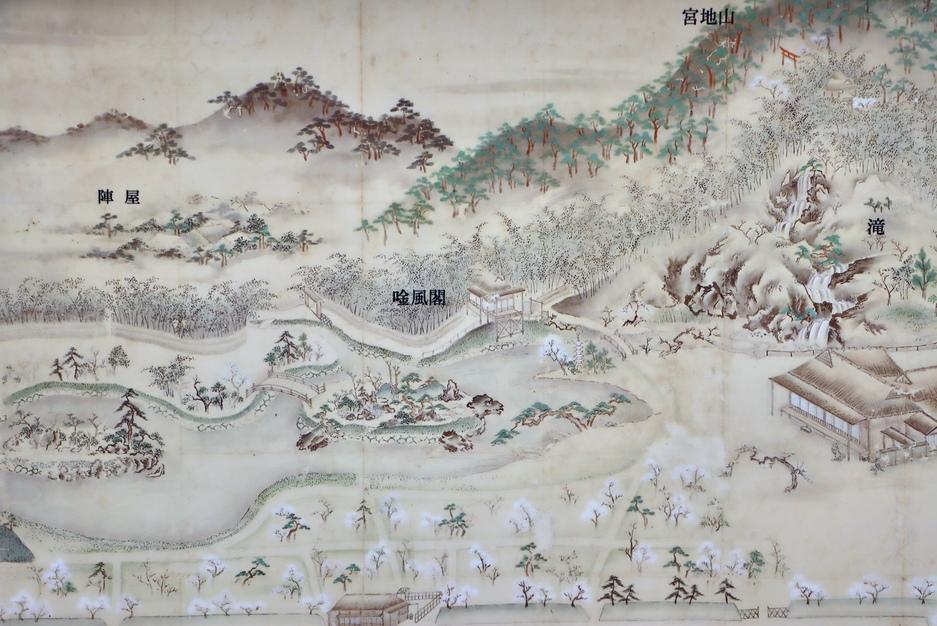 宮地山
陣屋
滝
唫風閣